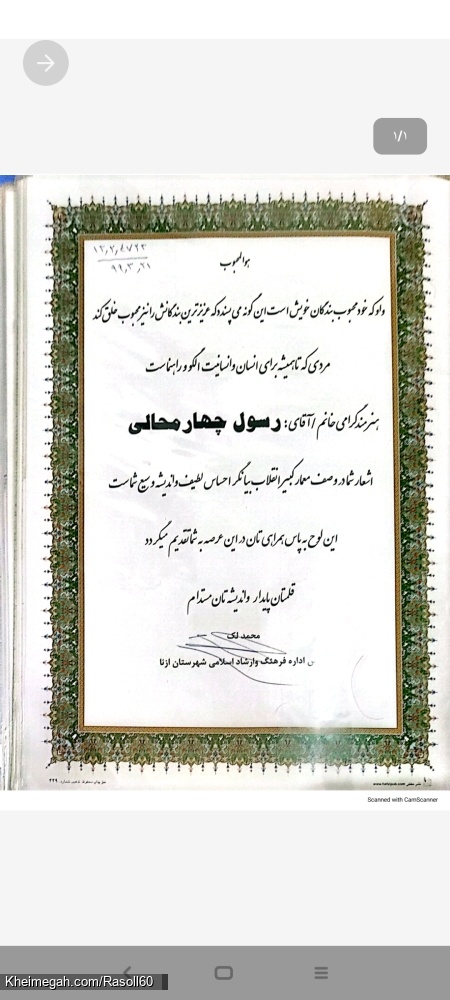 ۱/۱
هوالمحبوب
۹۹,۳,۲۱
و او که خود محبوب بندگان خویش است این گونه می پسندد که عزیزترین بندگانش را نیز محبوب خلق کند
مردی که تا همیشه برای انسان و انسانیت الگو و راهنماست
هنرمند گرامی خانم / آقای: رسول چهار محالی
اشعار شما در وصف معمار کبیر انقلاب بیانگر احساس لطیف و اندیشه وسیع شماست
این لوح به پاس همراهی تان در این عرصه به شما تقدیم میگردد
قلمتان پایدار و اندیشه تان مستدام
محمد لک
س اداره فرهنگ وارشاد اسلامی شهرستان ازنا
Scanned with CamScanner
Kheimegah.com/Rasoll60